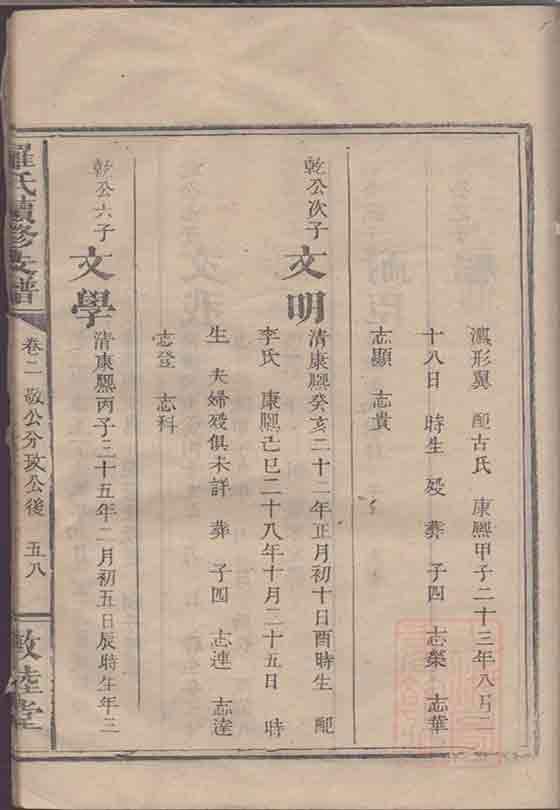 濕形巽 配古氏 康熙甲子二十三年八月二
十八日 時生 歿 葬 子四 志榮 志華
志顯 志貴
乾公次子 文明 清康熙癸亥二十二年正月初十日酉時生 配
李氏 康熙己巳二十八年十月二十五日 時
生 夫婦歿俱未詳 葬 子四 志連 志達
志登 志科
乾公六子 文學 清康熙丙子三十五年二月初五日辰時生年三
羅氏續修支譜 卷二 敬公分攻公後 五八 敦睦堂